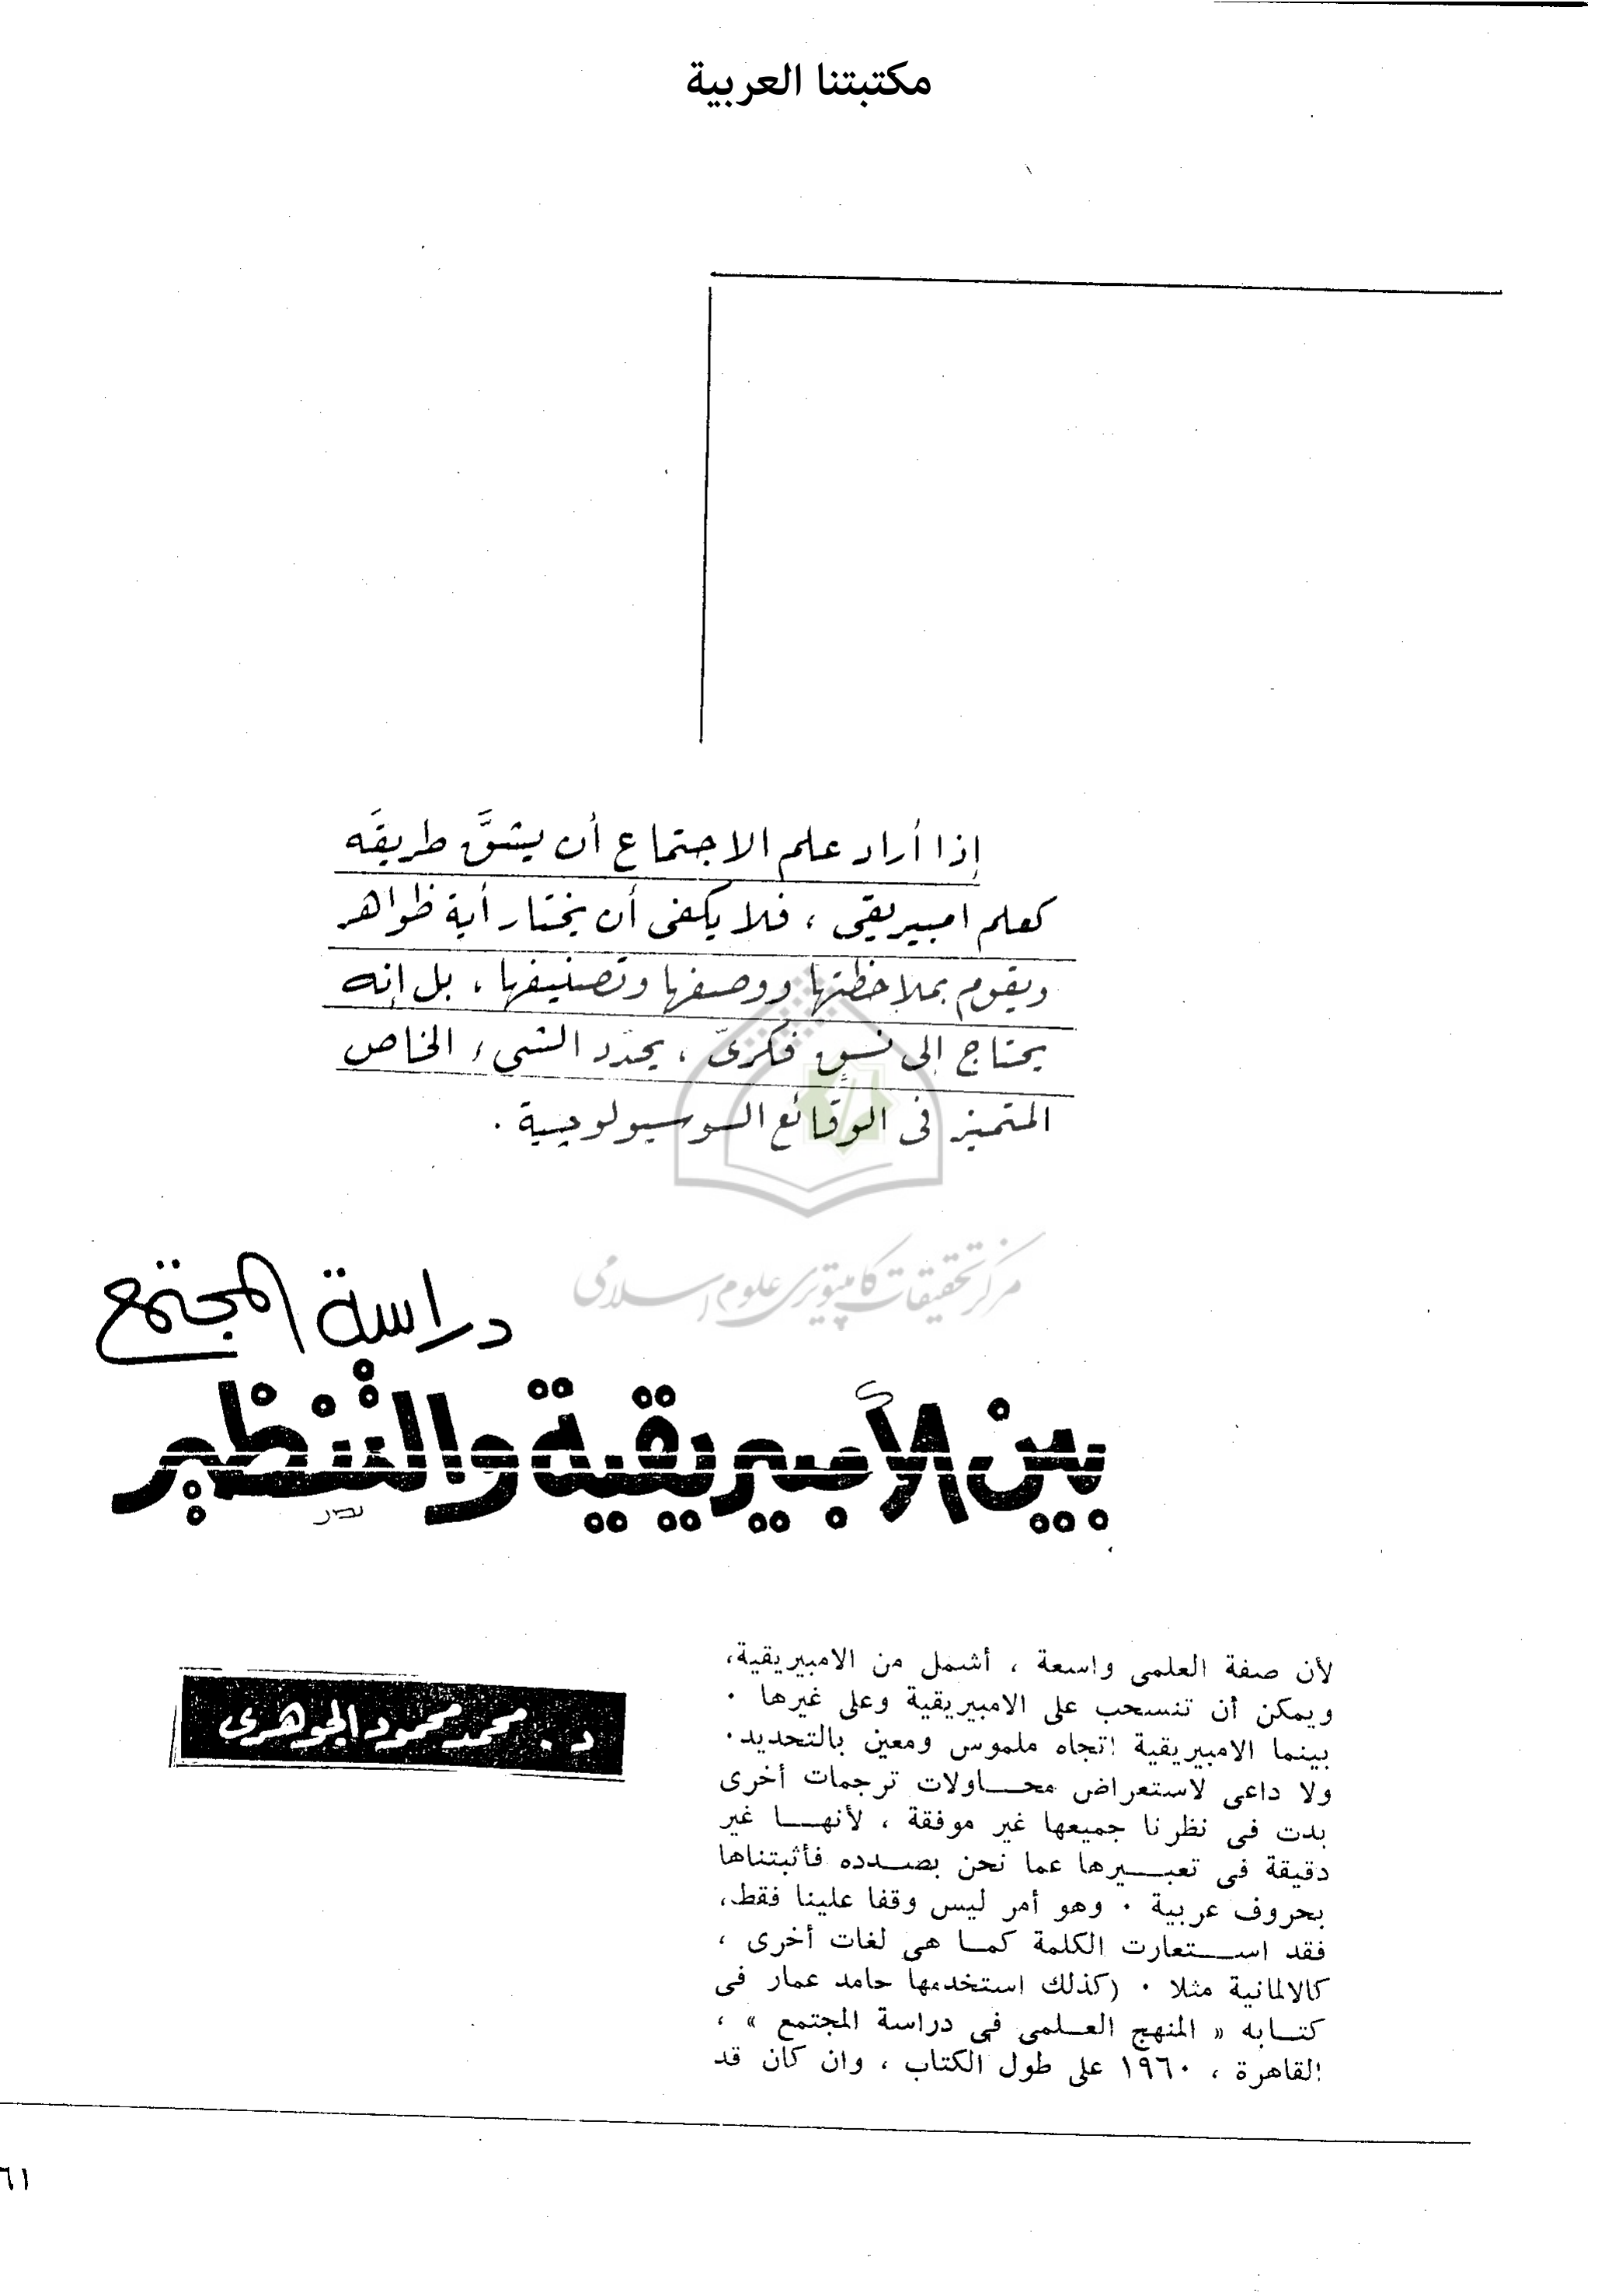 مكتبتنا العربية
إذا أراد علم الاجتماع أن يشقَّ طريقَه
كعلم امبيريقى ، فلا يكفى أن يختار أية ظواهر
ويقوم بملاحظتها ووصفها وتصنيفها ، بل إنه
يحتاج إلى نسقٍ فكرىّ ، يحدّد الشىء الخاص
المتميز فى الوقائع السوسيولوجية .
مركز تحقيقات كامپيوترى علوم اسلامى
دراسة المجتمع
بين الأمبيريقية والتنظير
د . محمد محمود الجوهرى
لأن صفة العلمى واسعة ، أشمل من الامبيريقية،
ويمكن أن تنسحب على الامبيريقية وعلى غيرها ٠
بينما الامبيريقية اتجاه ملموس ومعين بالتحديد٠
ولا داعى لاستعراض محاولات ترجمات أخرى
بدت فى نظرنا جميعها غير موفقة ، لأنها غير
دقيقة فى تعبيرها عما نحن بصدده فأثبتناها
بحروف عربية ٠ وهو أمر ليس وقفا علينا فقط،
فقد استعارت الكلمة كما هى لغات أخرى ،
كالالمانية مثلا ٠ (كذلك استخدمها حامد عمار فى
كتابه « المنهج العلمى فى دراسة المجتمع » ،
القاهرة ، ١٩٦٠ على طول الكتاب ، وان كان قد
٦١